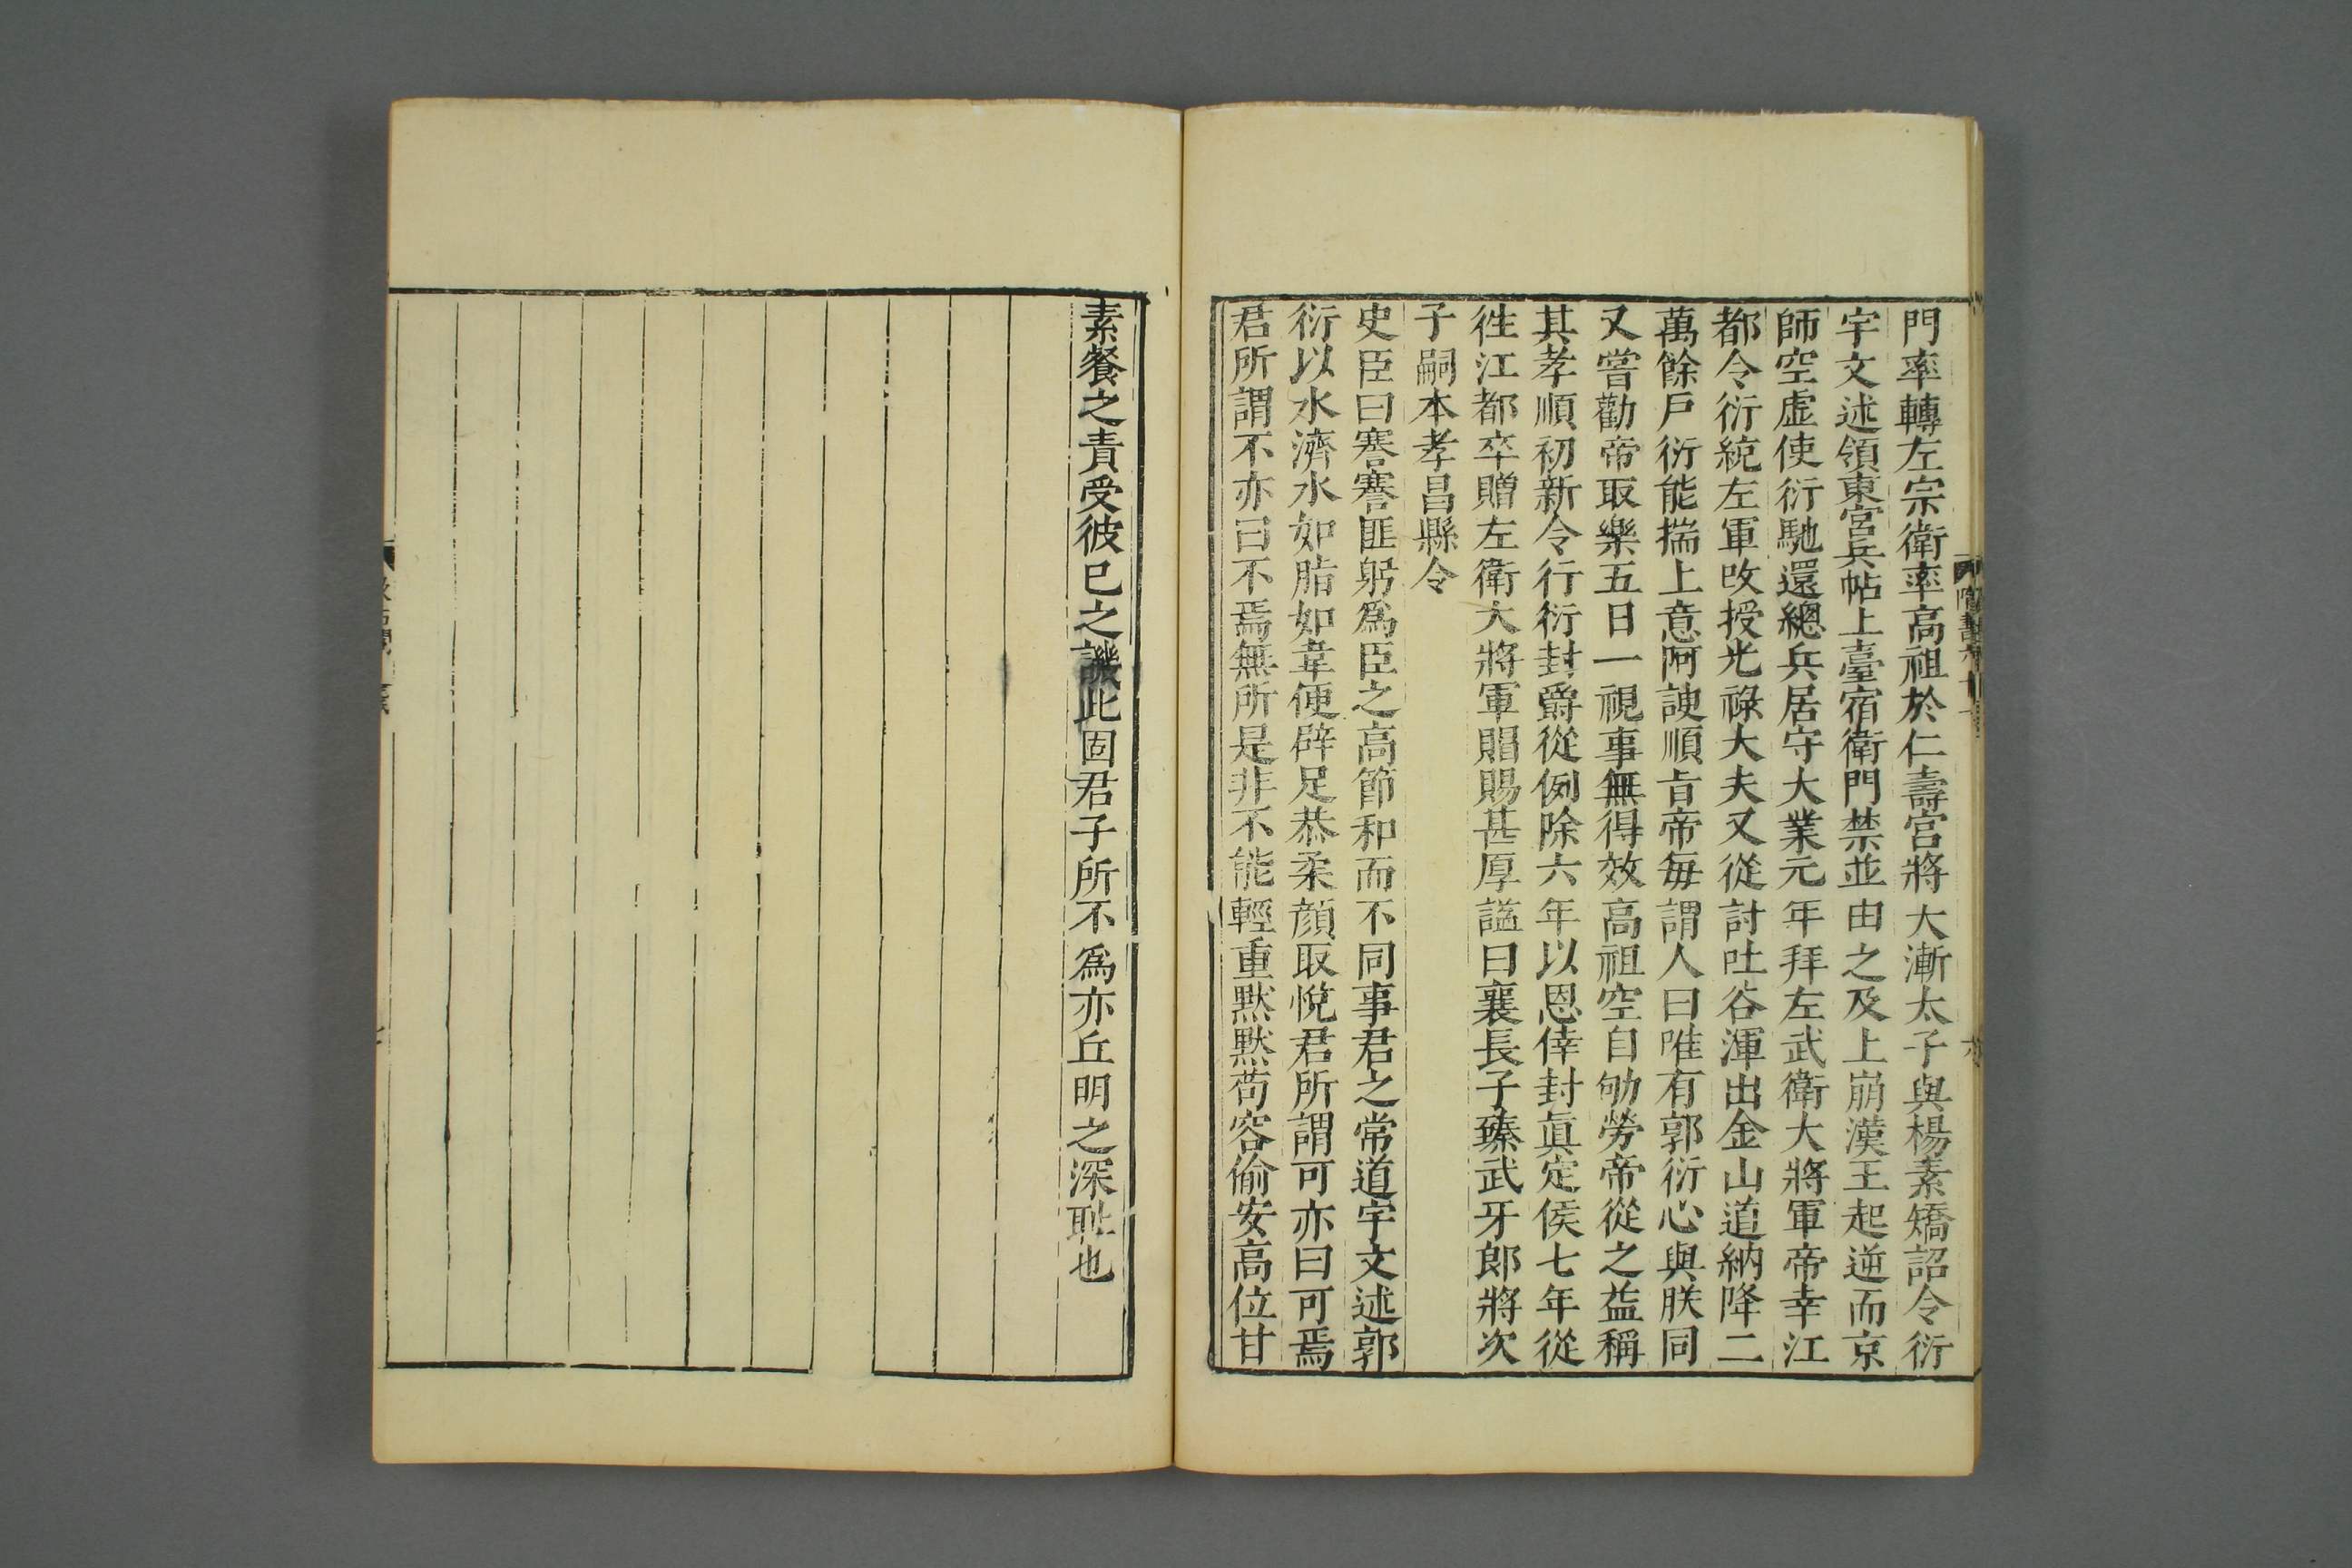 門率轉左宗衛率高祖於仁壽宮將大漸太子與楊素矯詔令衍
宇文述領東宮兵帖上臺宿衛門禁並由之及上崩漢王起逆而京
師空虛使衍馳還總兵居守大業元年拜左武衛大將軍帝幸江
都令衍統左軍改授光祿大夫又從討吐谷渾出金山道納降二
萬餘戶衍能揣上意阿諛順旨帝每謂人曰唯有郭衍心與朕同
又嘗勸帝取樂五日一視事無得效高祖空自劬勞帝從之益稱
其孝順初新令行衍封爵從例除六年以恩倖封眞定侯七年從
徃江都卒贈左衛大將軍賵賜甚厚諡曰襄長子臻武牙郎將次
子嗣本孝昌縣令
史臣曰謇謇匪躬爲臣之高節和而不同事君之常道宇文述郭
衍以水濟水如脂如韋便辟足恭柔顔取悅君所謂可亦曰可焉
君所謂不亦曰不焉無所是非不能輕重默默苟容偷安高位甘
素餐之責受彼已之譏此固君子所不爲亦丘明之深耻也